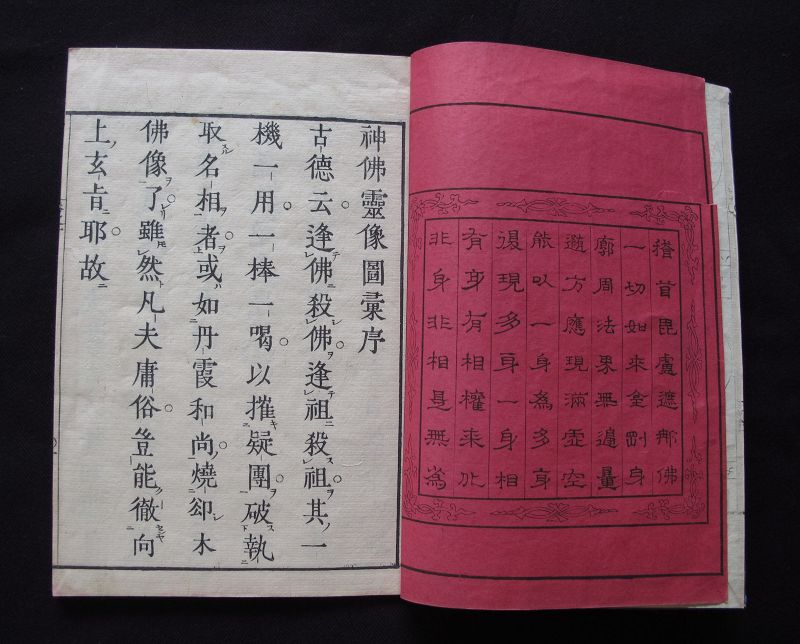 稽首毘盧遮那佛
一切如來金剛身
廓周法界無邊量
遊方應現滿虛空
能以一身為多身
復現多身一身相
有身有相權來化
非身非相是無為
神佛靈像圖彙序
古德云逢佛殺佛逢祖殺祖其一
機一用一棒一喝以摧疑團破執
取名相者或如丹霞和尚燒却木
佛像了雖然凡夫庸俗豈能徹向
上玄旨耶故